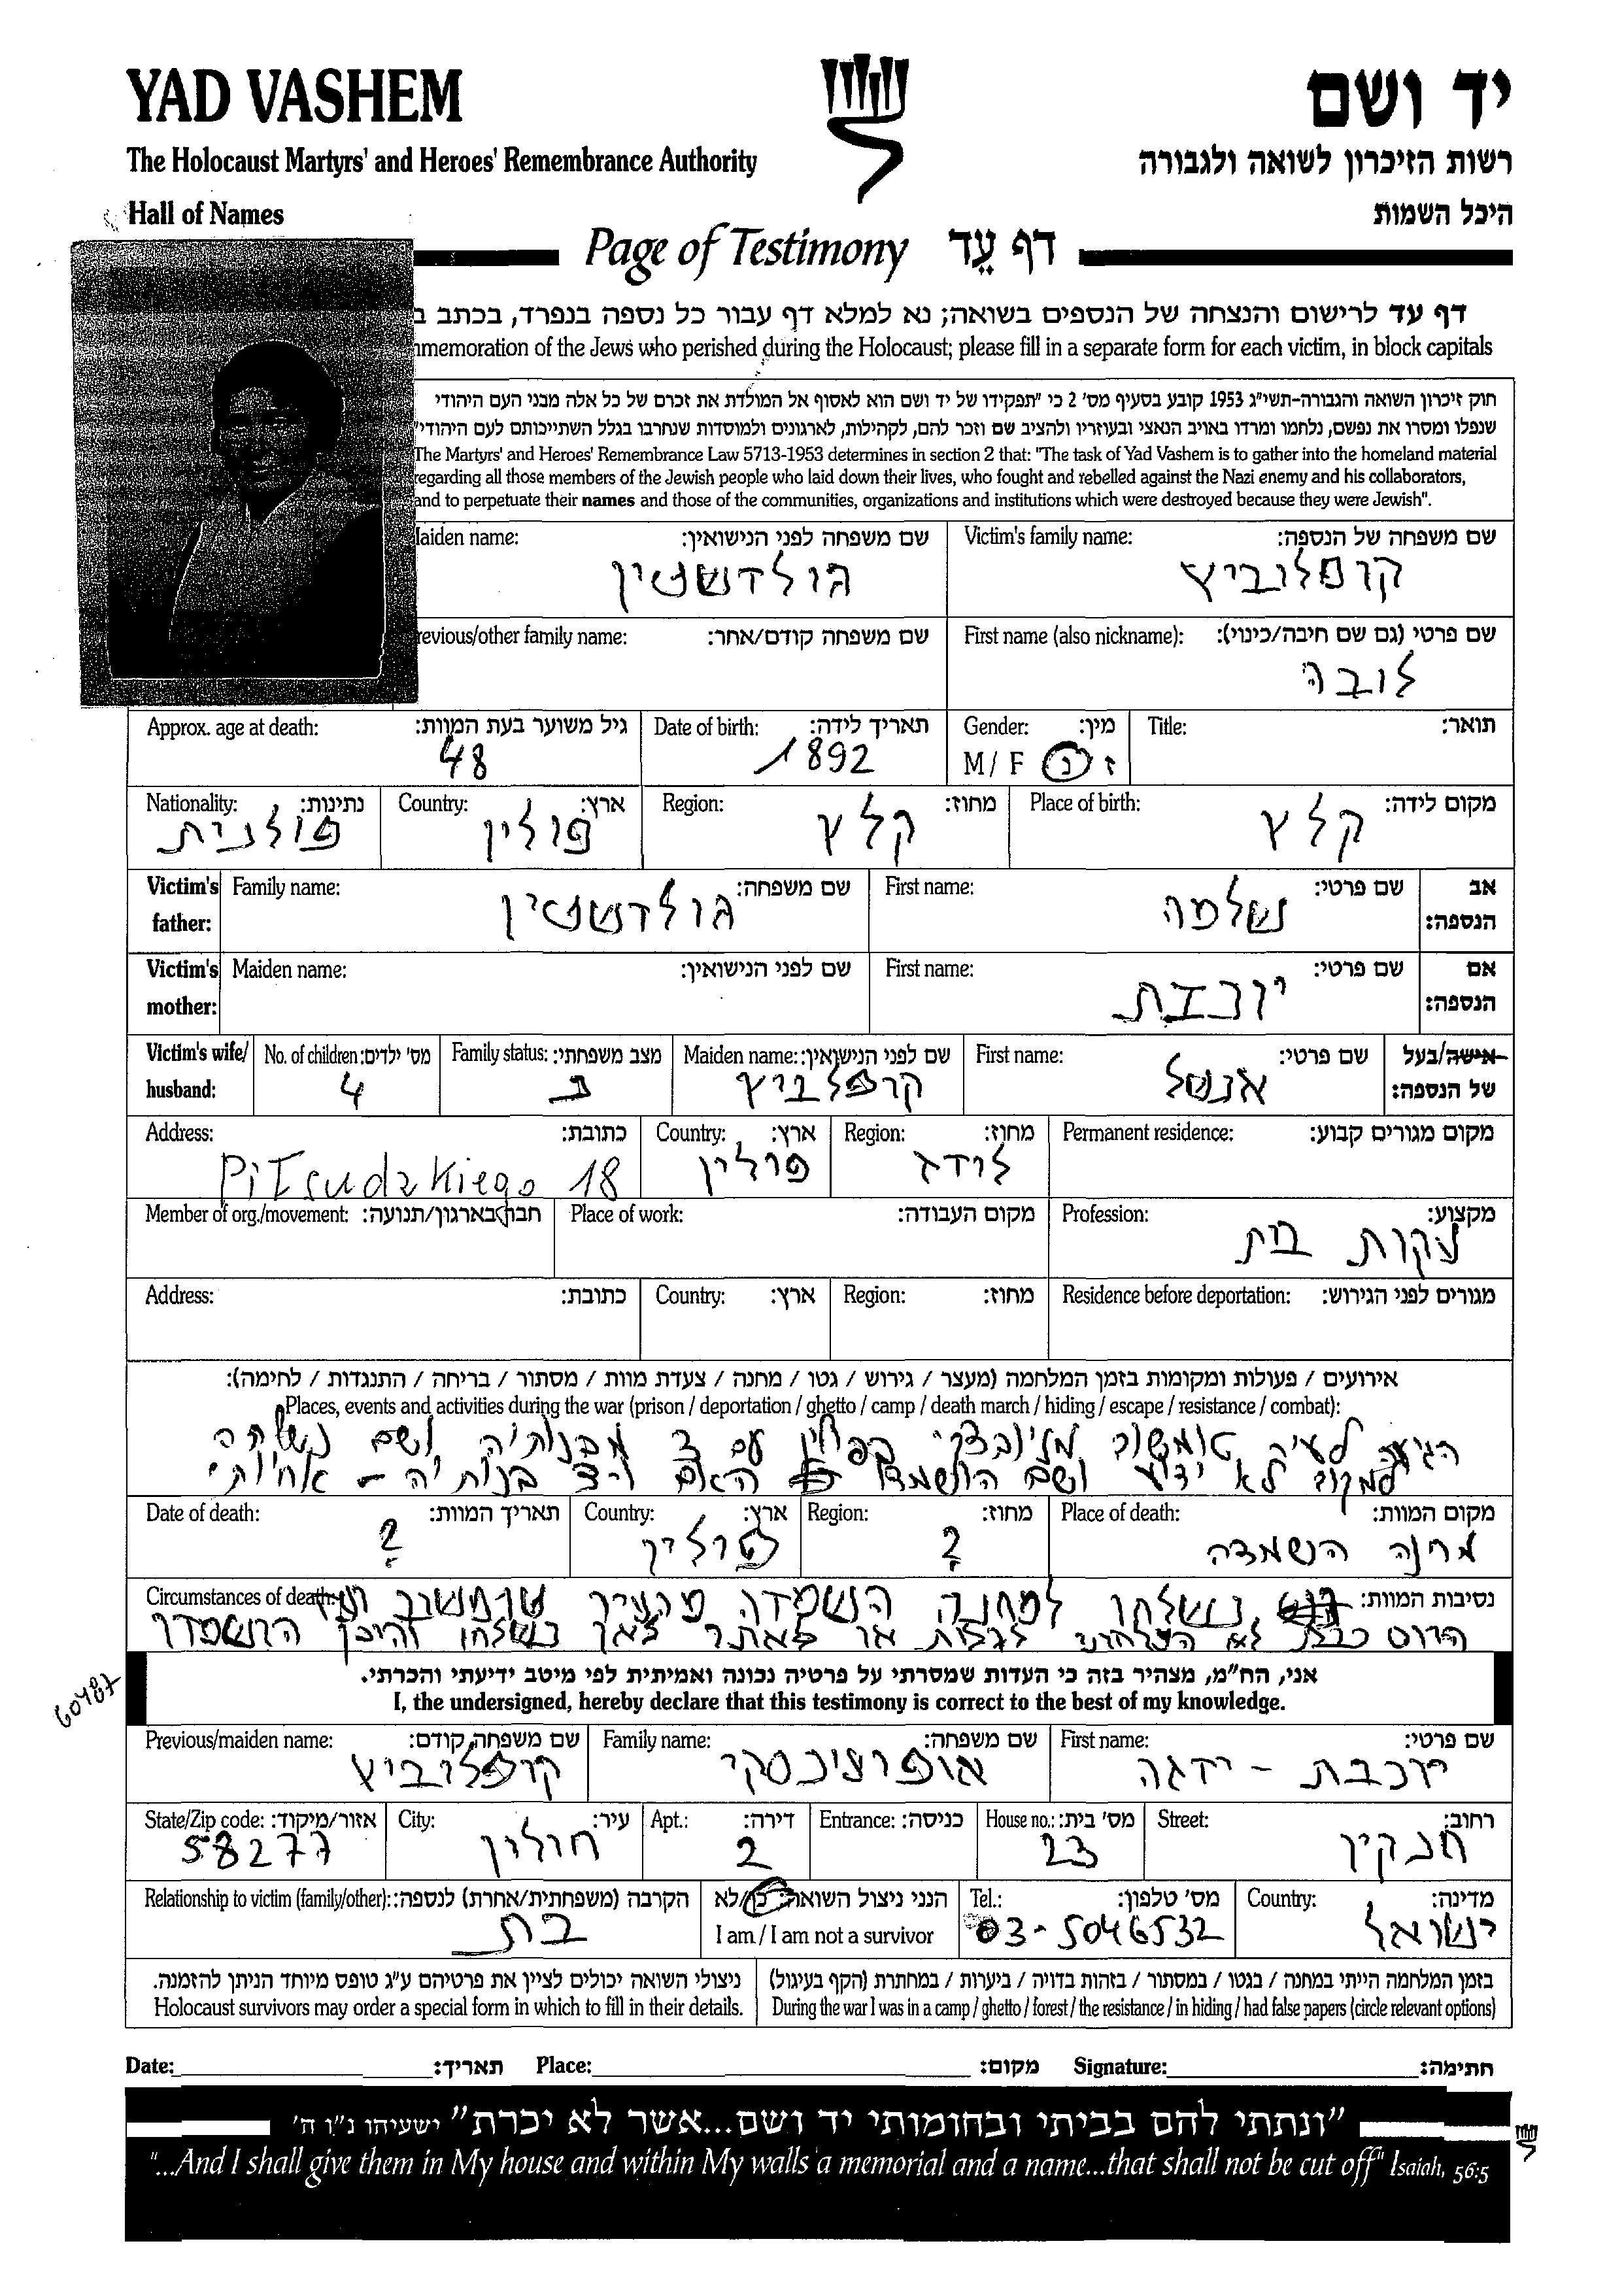 YAD VASHEM
יד ושם
The Holocaust Martyrs' and Heroes' Remembrance Authority
רשות הזיכרון לשואה ולגבורה
Hall of Names
היכל השמות
Page of Testimony דף עֵד
דף עד לרישום והנצחה של הנספים בשואה; נא למלא דף עבור כל נספה בנפרד, בכתב
memoration of the Jews who perished during the Holocaust; please fill in a separate form for each victim, in block capitals
חוק זיכרון השואה והגבורה-תשי"ג 1953 קובע בסעיף מס' 2 כי "תפקידו של יד ושם הוא לאסוף אל המולדת את זכרם של כל אלה מבני העם היהודי
שנפלו ומסרו את נפשם, נלחמו ומרדו באויב הנאצי ובעוזריו ולהציב שם וזכר להם, לקהילות, לארגונים ולמוסדות שנחרבו בגלל השתייכותם לעם היהודי"
The Martyrs' and Heroes' Remembrance Law 5713-1953 determines in section 2 that: "The task of Yad Vashem is to gather into the homeland material
regarding all those members of the Jewish people who laid down their lives, who fought and rebelled against the Nazi enemy and his collaborators,
and to perpetuate their names and those of the communities, organizations and institutions which were destroyed because they were Jewish".
Victim's family name: שם משפחה של הנספה: aiden name: שם משפחה לפני הנישואין:
קופלוביץ גולדשטיין
First name (also nickname): שם פרטי (גם שם חיבה/כינוי): revious/other family name: שם משפחה קודם/אחר:
לובה
Title: תואר: Gender: מין: Date of birth: תאריך לידה: Approx. age at death: גיל משוער בעת המוות:
M / F ז נ 1892 48
Place of birth: מקום לידה: Region: מחוז: Country: ארץ: Nationality: נתינות:
קלץ קלץ פולין פולנית
אב הנספה: Victim's father: First name: שם פרטי: Family name: שם משפחה:
שלמה גולדשטיין
אם הנספה: Victim's mother: First name: שם פרטי: Maiden name: שם לפני הנישואין:
יוכבת
אישה/בעל של הנספה: Victim's wife/ husband: First name: שם פרטי: Maiden name: שם לפני הנישואין: Family status: מצב משפחתי: No. of children: מס' ילדים:
אנשל קופלביץ ב 4
Permanent residence: מקום מגורים קבוע: Region: מחוז: Country: ארץ: Address: כתובת:
לודז פולין 18
Profession: מקצוע: Place of work: מקום העבודה: Member of org./movement: חבר בארגון/תנועה:
בית
Residence before deportation: מגורים לפני הגירוש: Region: מחוז: Country: ארץ: Address: כתובת:
אירועים / פעולות ומקומות בזמן המלחמה (מעצר / גירוש / גטו / מחנה / צעדת מוות / מסתור / בריחה / התנגדות / לחימה):
Places, events and activities during the war (prison / deportation / ghetto / camp / death march / hiding / escape / resistance / combat):
לעיר טומשוב מזובצקי בפולין עם 3 מבנותיה ושם נשלחה
למקום לא ידוע ושם הושמדו האם ו-3 בנותיה - אחיותי
Place of death: מקום המוות: Region: מחוז: Country: ארץ: Date of death: תאריך המוות:
מחנה השמדה ? פולין ?
Circumstances of death: נסיבות המוות:
נשלחו למחנה השמדה מהעיר טומשוב
לא הצלחתי לגלות או לאתר לאן נשלחו והיכן הושמדו
אני, הח"מ, מצהיר בזה כי העדות שמסרתי על פרטיה נכונה ואמיתית לפי מיטב ידיעתי והכרתי.
I, the undersigned, hereby declare that this testimony is correct to the best of my knowledge.
60487
First name: שם פרטי: Family name: שם משפחה: Previous/maiden name: שם משפחה קודם:
יוכבת - ידגה קופלוביץ
Street: רחוב: House no.: מס' בית: Entrance: כניסה: Apt.: דירה: City: עיר: State/Zip code: אזור/מיקוד:
חנקין 23 2 חולון 58277
Country: מדינה: Tel.: מס' טלפון: הנני ניצול השואה: כן/לא I am / I am not a survivor Relationship to victim (family/other): הקרבה (משפחתית/אחרת) לנספה:
ישראל 03-5046532 בת
בזמן המלחמה הייתי במחנה / בגטו / במסתור / בזהות בדויה / ביערות / במחתרת (הקף בעיגול)
During the war I was in a camp / ghetto / forest / the resistance / in hiding / had false papers (circle relevant options)
ניצולי השואה יכולים לציין את פרטיהם ע"ג טופס מיוחד הניתן להזמנה.
Holocaust survivors may order a special form in which to fill in their details.
Date: תאריך: Place: מקום: Signature: חתימה:
"ונתתי להם בביתי ובחומותי יד ושם...אשר לא יכרת" ישעיהו נ"ו ה'
"...And I shall give them in My house and within My walls a memorial and a name...that shall not be cut off" Isaiah, 56:5